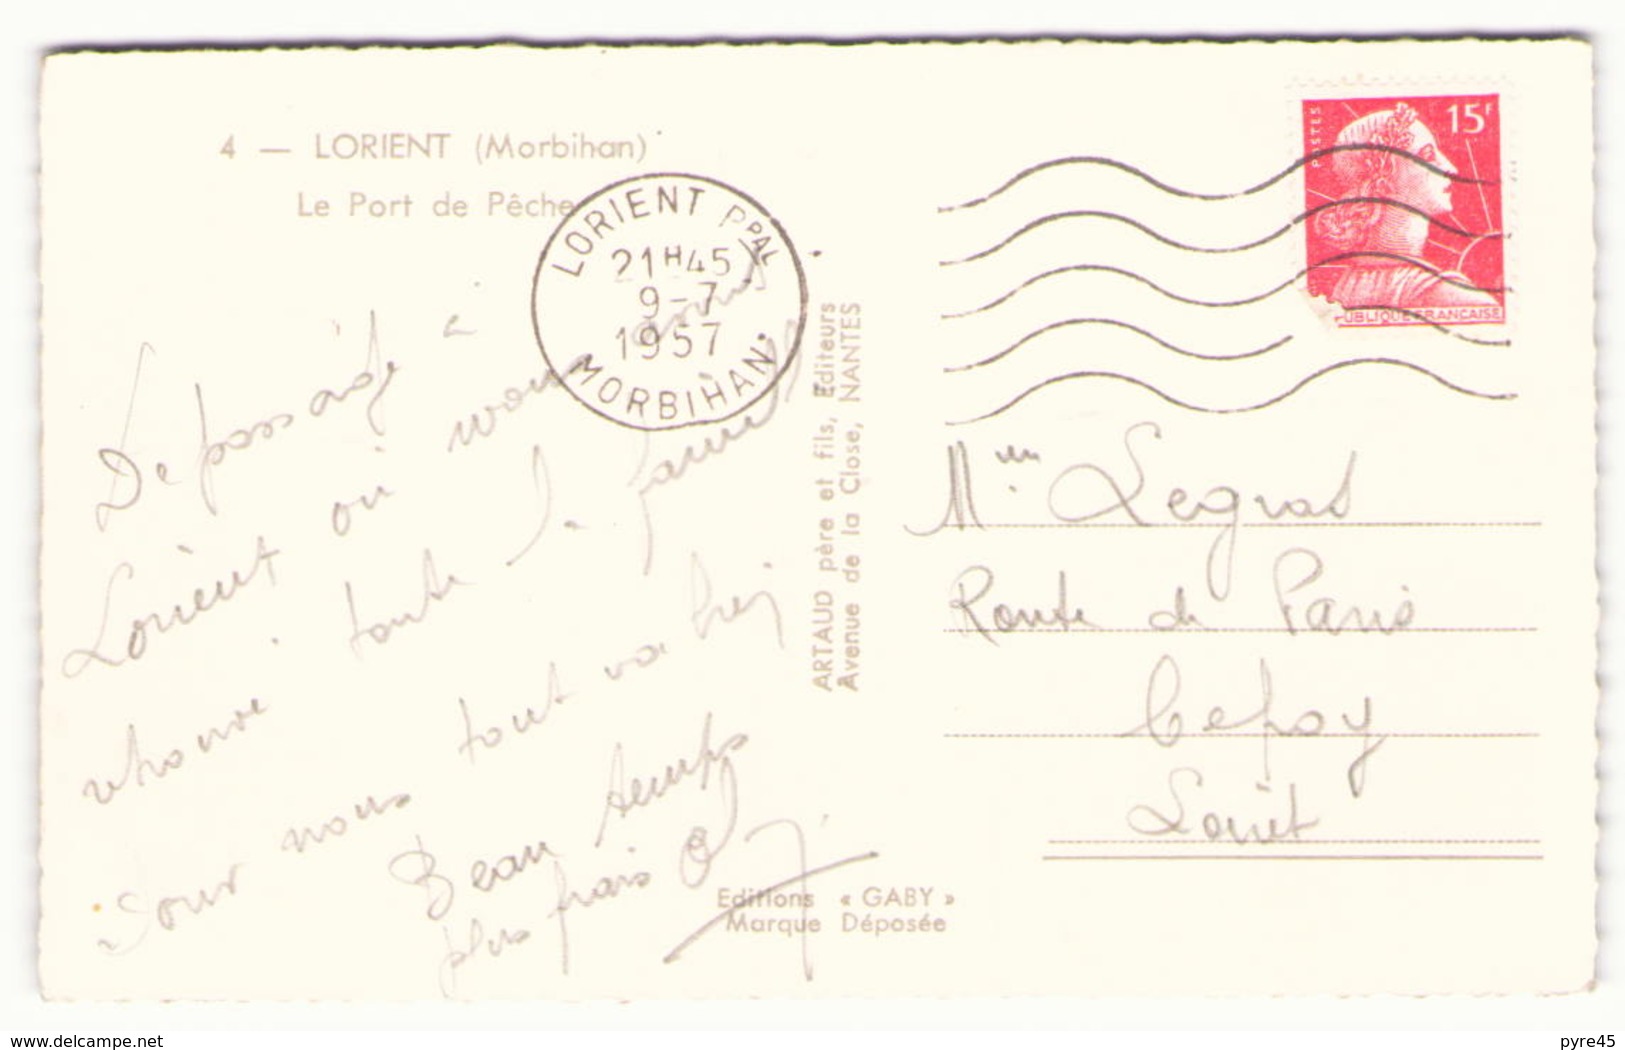 4 — LORIENT (Morbihan)
Le Port de Pêche
LORIENT PPAL
21H45
9-7
1957
MORBIHAN
POSTES
15F
UBLIQUE FRANCAISE
De passage à
Lorient où nous avons
retrouvé toute la famille
Pour nous tout va bien
Beau temps
plus frais
ARTAUD père et fils, Editeurs
Avenue de la Close, NANTES
Editions « GABY »
Marque Déposée
Legras
Route de Paris
Cepoy
Loiret
www.delcampe.net
pyre45